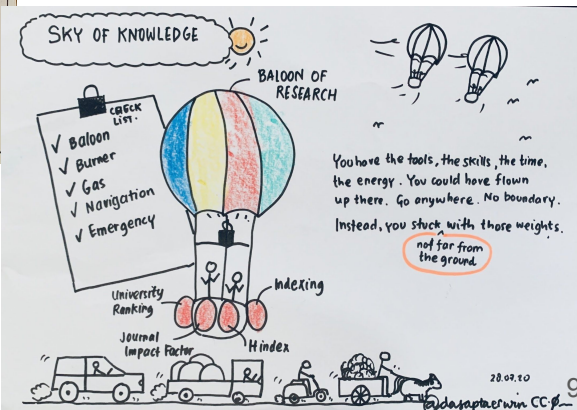 SKY OF KNOWLEDGE
BALOON OF
RESEARCH
CHECK
LIST.
✓ Baloon
✓ Burner
✓ Gas
✓ Navigation
✓ Emergency
You have the tools, the skills, the time,
the energy. You could have flown
up there. Go anywhere. No boundary.
Instead, you stuck with those weights.
not far from
the ground
University
Ranking
Journal
Impact Factor
Hindex
Indexing
28.07.20
@dasaptaerwin CC-0
9